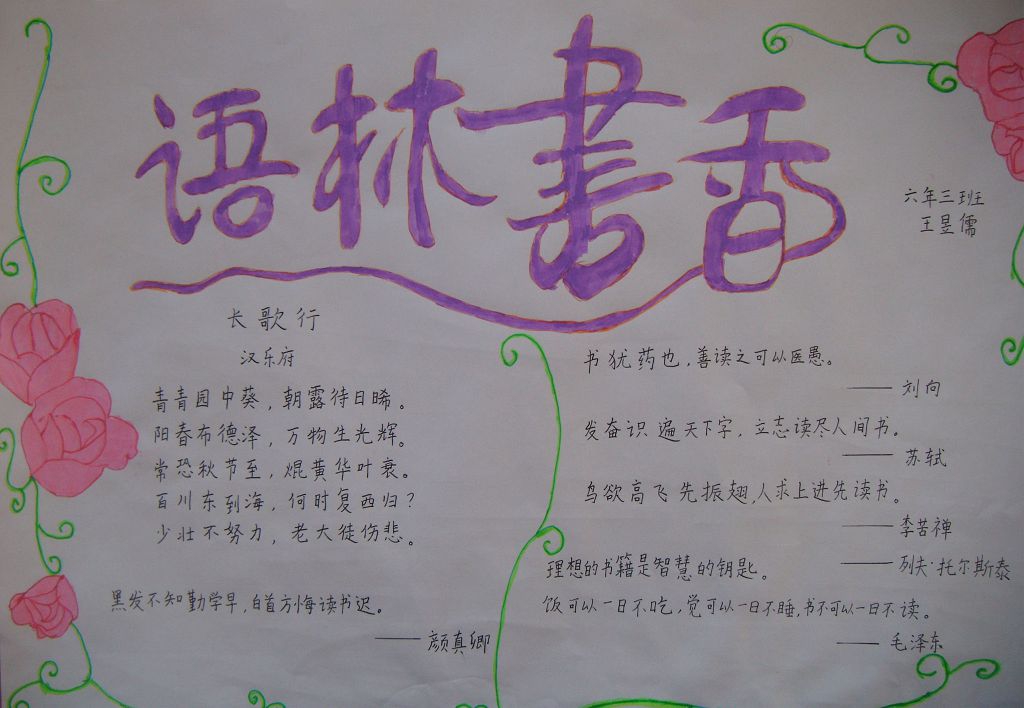 语林書香
六年三班
王昱儒
长歌行
汉乐府
青青园中葵，朝露待日晞。
阳春布德泽，万物生光辉。
常恐秋节至，焜黄华叶衰。
百川东到海，何时复西归？
少壮不努力，老大徒伤悲。
黑发不知勤学早，白首方悔读书迟。
——颜真卿
书犹药也，善读之可以医愚。
——刘向
发奋识遍天下字，立志读尽人间书。
——苏轼
鸟欲高飞先振翅，人求上进先读书。
——李苦禅
理想的书籍是智慧的钥匙。——列夫·托尔斯泰
饭可以一日不吃，觉可以一日不睡，书不可以一日不读。
——毛泽东